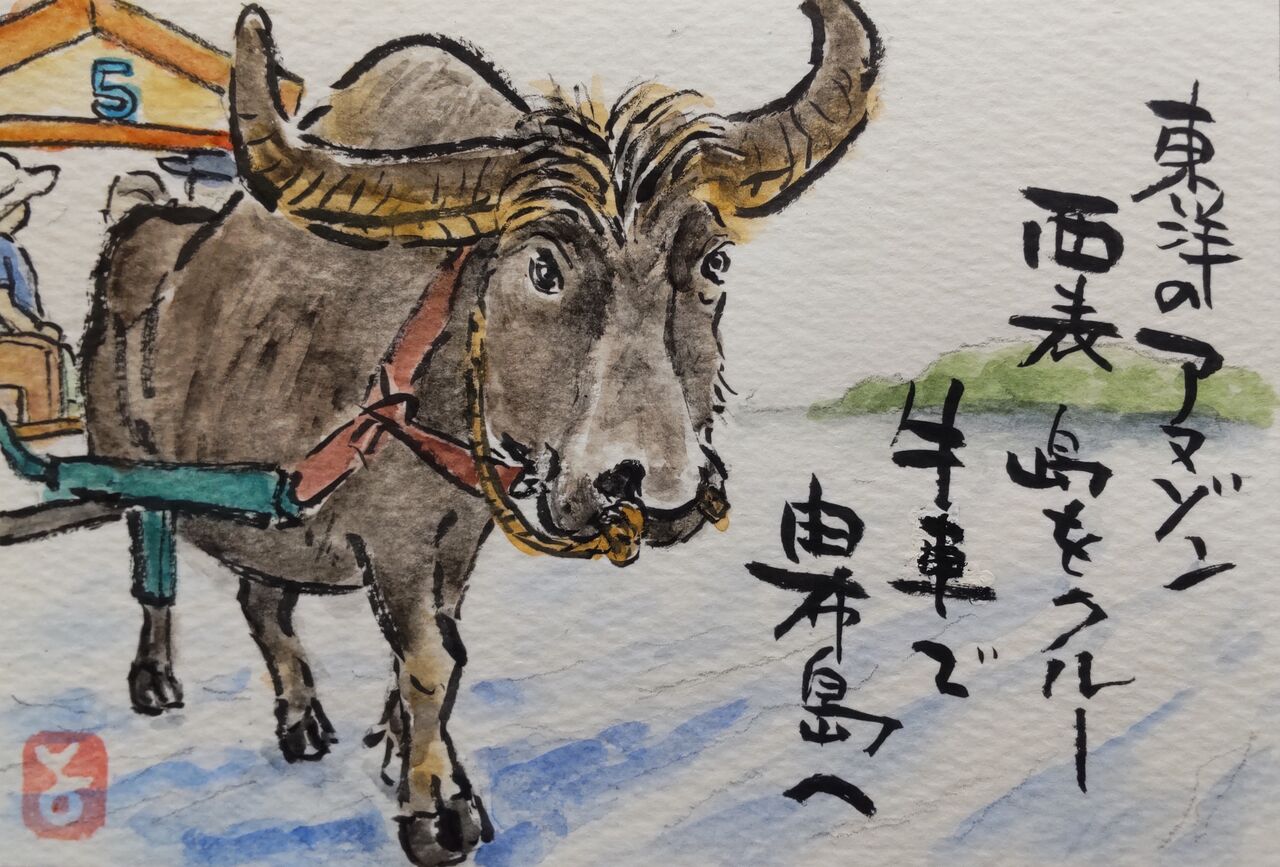 東洋のアマゾン
西表島をクルー
牛車で
由布島へ
5